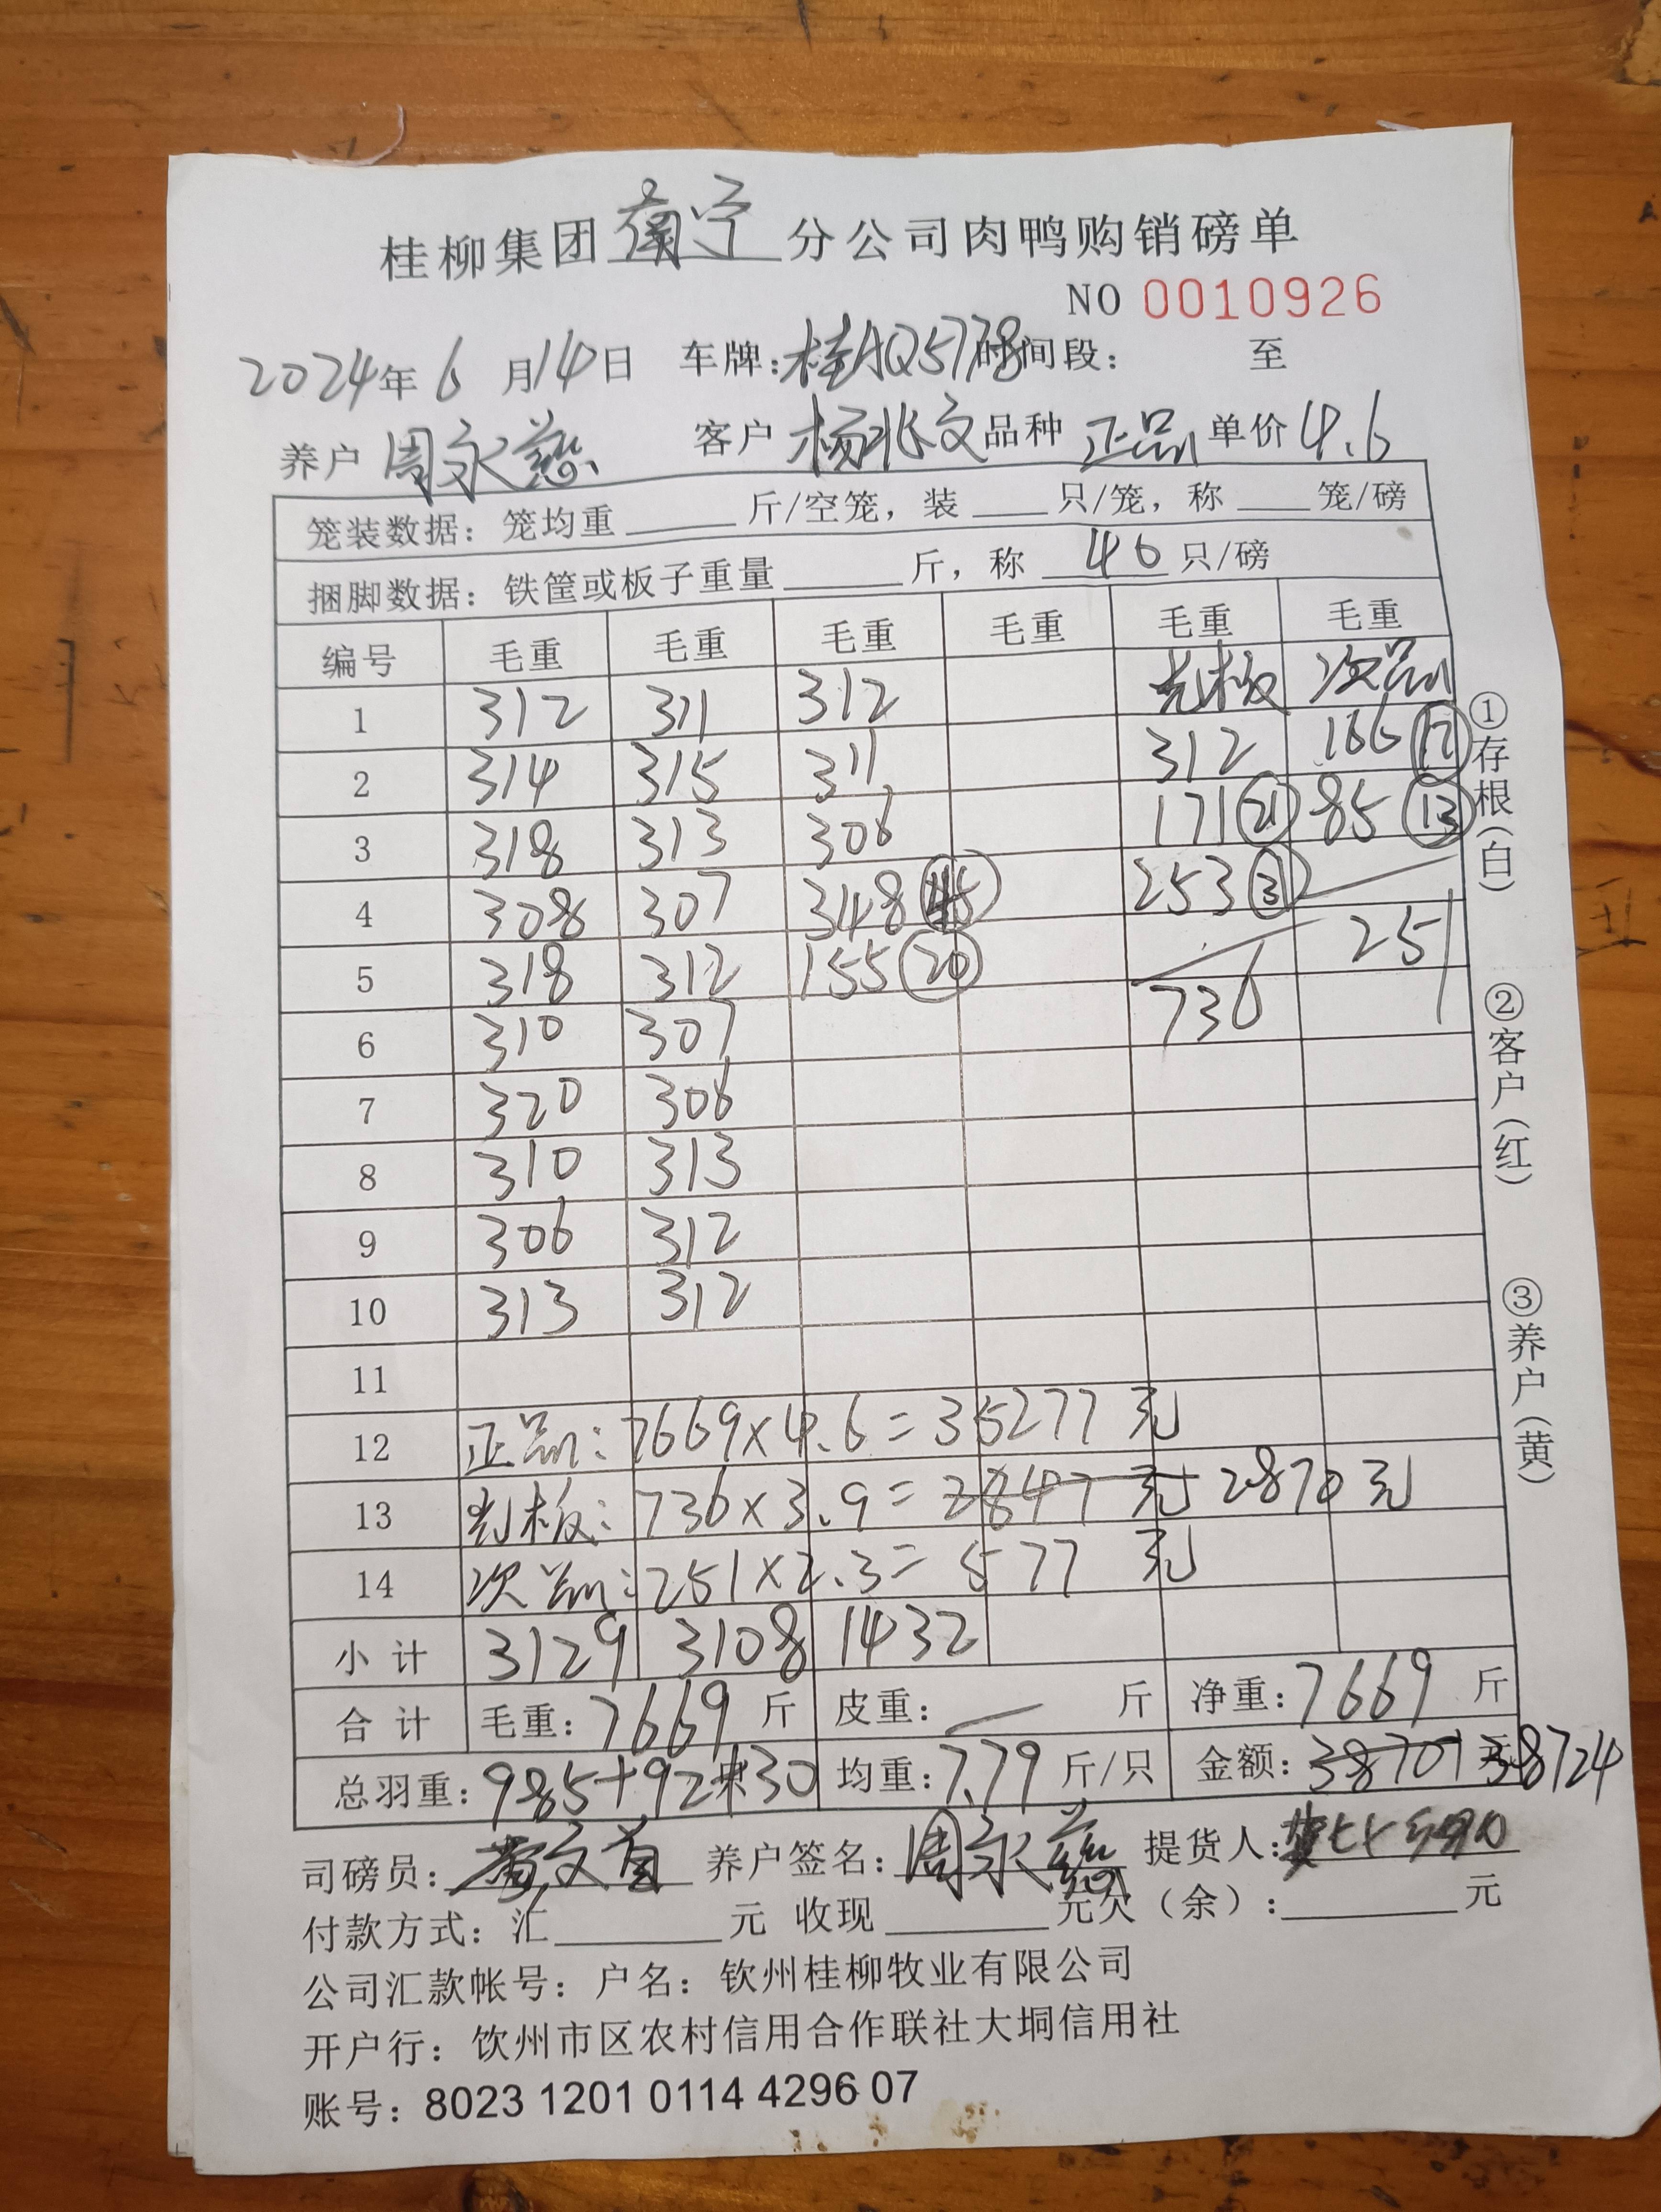 桂柳集团南宁分公司肉鸭购销磅单
NO 0010926
2024年6月14日 车牌:桂AQ5778时间段: 至
养户 周永慈 客户 杨兆文 品种 正品 单价 4.6
笼装数据: 笼均重 斤/空笼, 装 只/笼, 称 笼/磅
捆脚数据: 铁筐或板子重量 斤, 称 40 只/磅
编号 毛重 毛重 毛重 毛重 毛重 毛重
1 312 311 312 光板 次品
2 314 315 311 312 166
3 318 313 306 171 21 85 13
4 308 307 348 45 253
5 318 312 155 20 251
6 310 307 736
7 320 306
8 310 313
9 306 312
10 313 312
11
12 正品: 7669×4.6=35277元
13 光板: 736×3.9=2847元 2870元
14 次品: 251×2.3=577元
小计 3129 3108 1432
合计 毛重: 7669 斤 皮重: — 斤 净重: 7669 斤
总羽重: 985+92+30 均重: 7.79 斤/只 金额: 38701 元 38724
司磅员: 养户签名: 周永慈 提货人:
付款方式: 汇 元 收现 元欠(余): 元
公司汇款帐号: 户名: 钦州桂柳牧业有限公司
开户行: 饮州市区农村信用合作联社大垌信用社
账号: 8023 1201 0114 4296 07
①存根(白)
②客户(红)
③养户(黄)